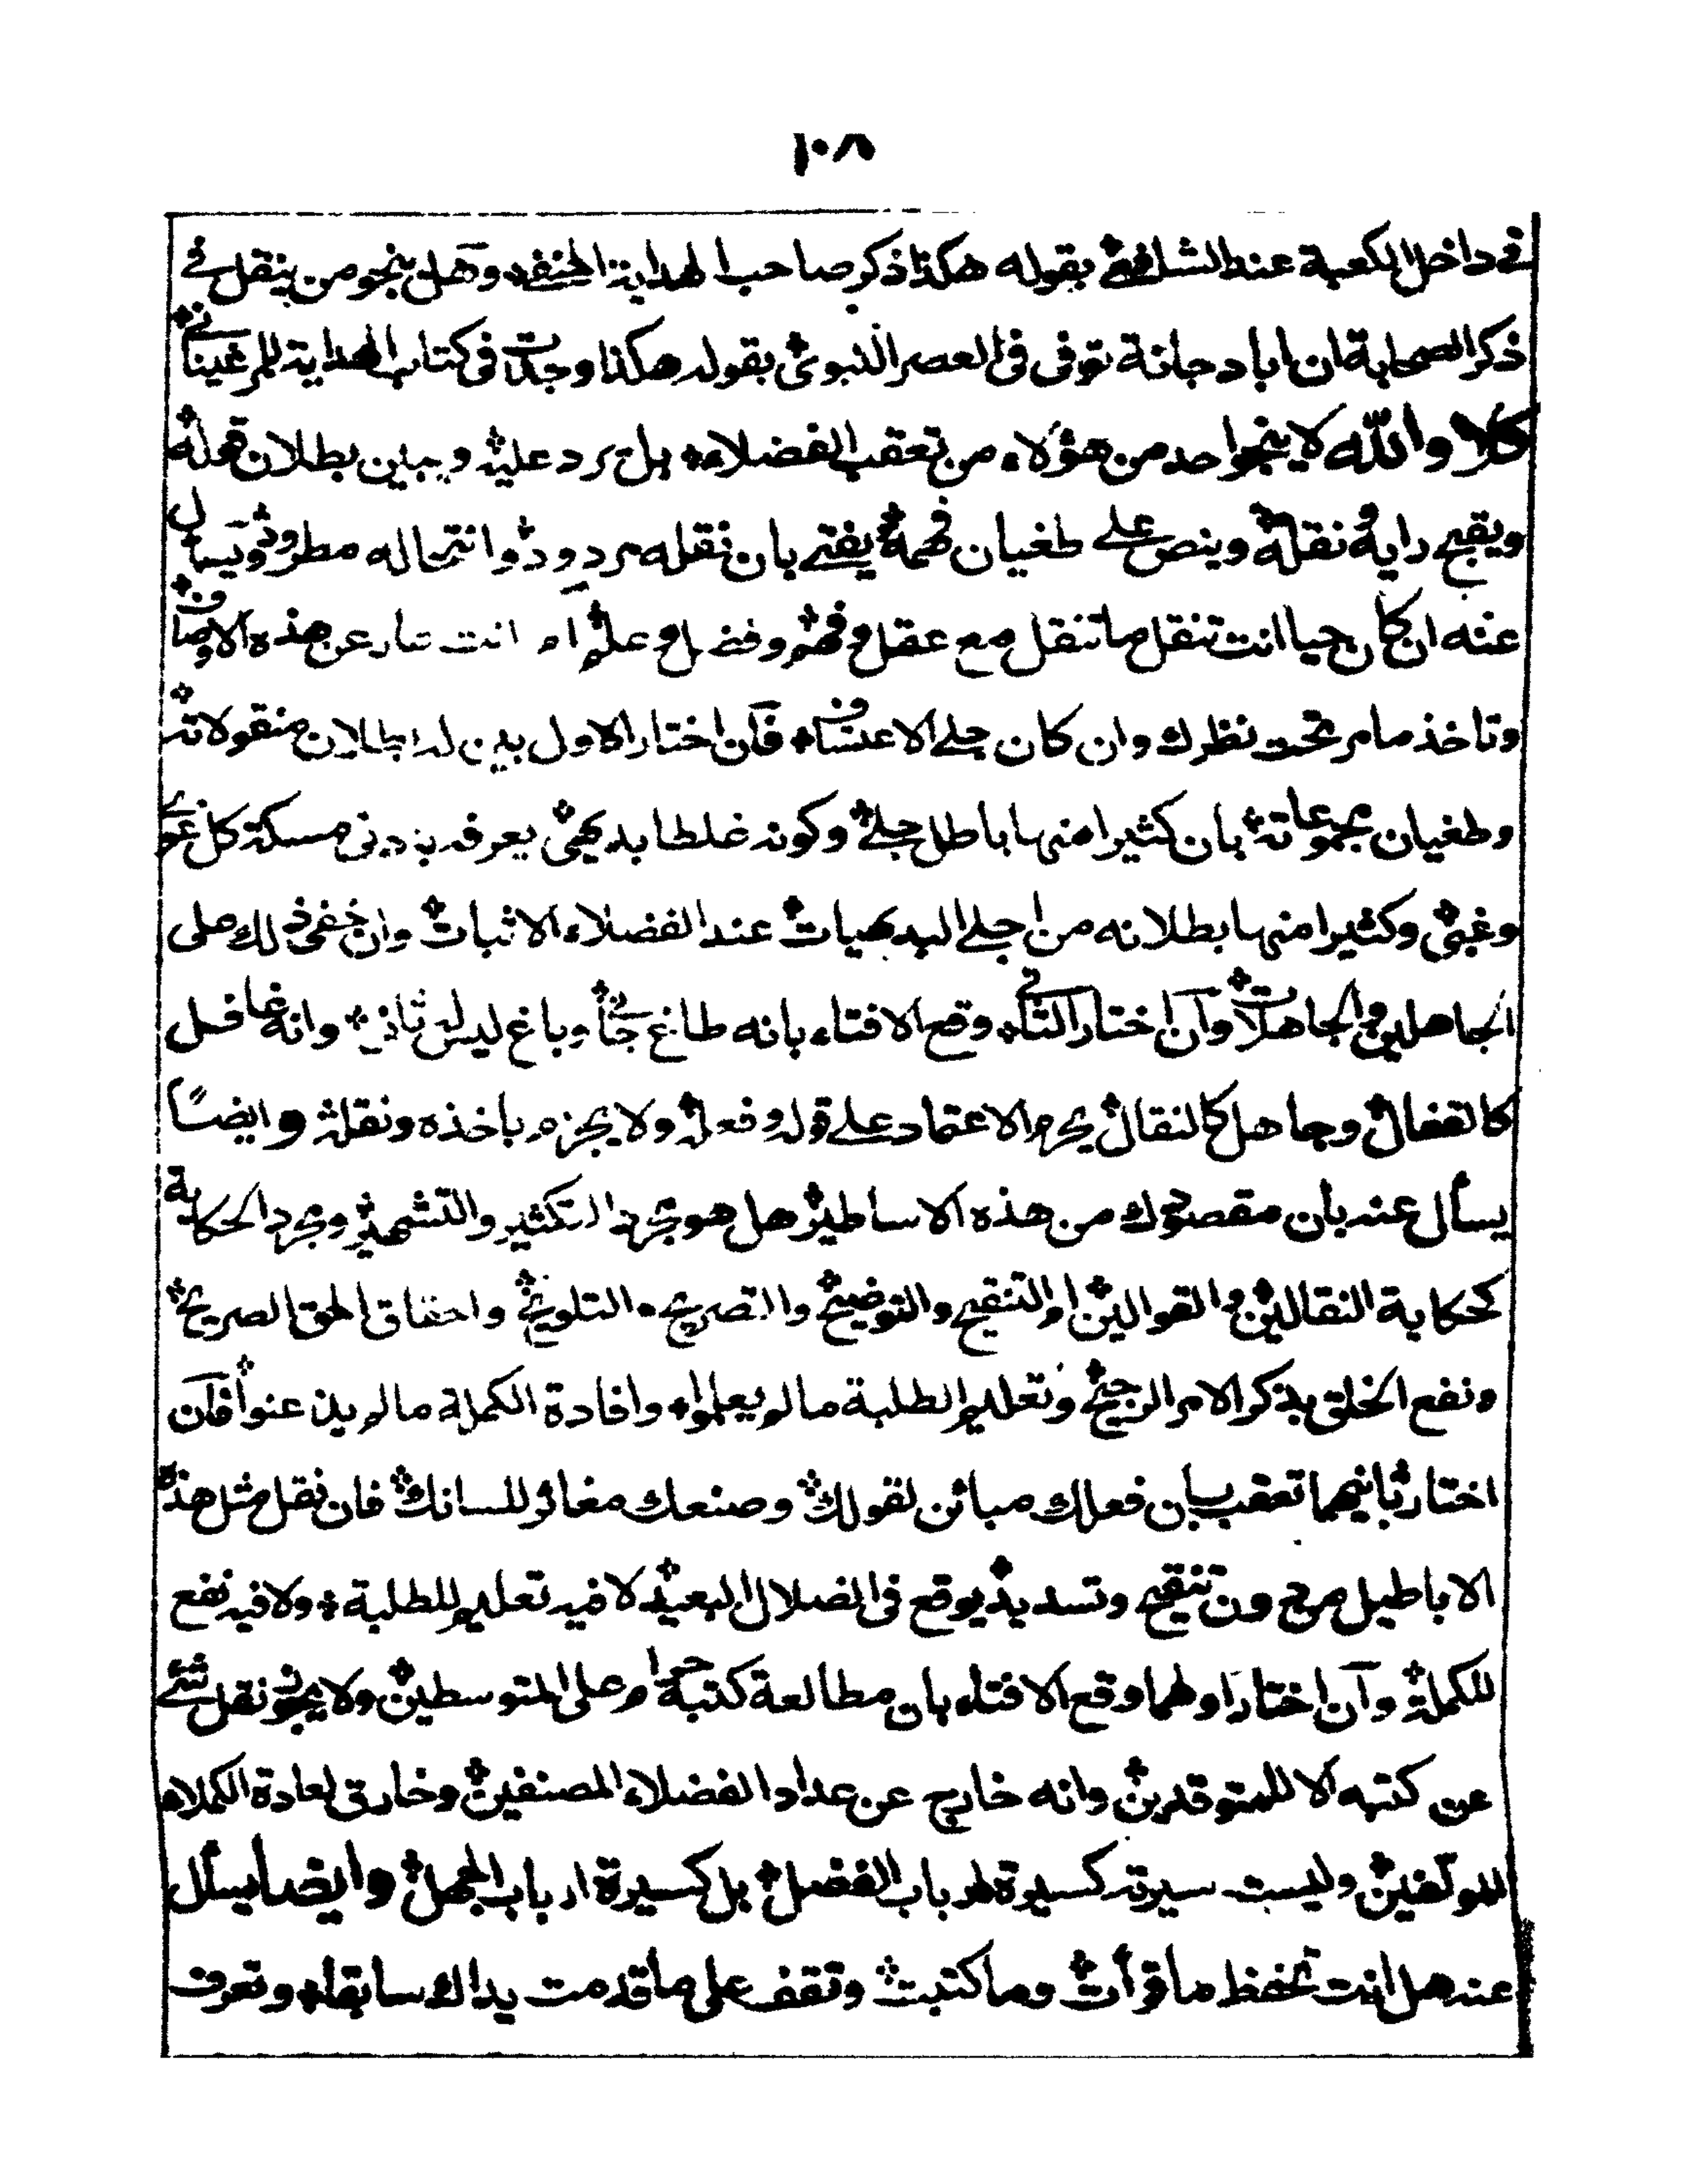 ١٠٨
فى داخل الكعبة عند الشافعى بقوله هكذا ذكر صاحب الهداية الحنفى وهل ينجو من ينقل فى
ذكر الصحابة ان ابا دجانة توفى فى العصر النبوى بقوله هكذا وجدت فى كتاب الهداية للمرغينانى
كلا والله لا ينجو احد من هؤلاء من تعقب الفضلاء بل يرد عليه ويبين بطلان قوله
ويقبح رايه نقله وينص على طغيان فهمه يفتى بان نقله مردود وانتحاله مطرود ويسأل
عنه ان كان حيا انت تنقل ما تنقل مع عقل وفهم وفضل وعلم ام انت عار عن هذه الاوصاف
وتاخذ ما مر تحت نظرك وان كان جلى الاعتساف فان اختار الاول بين له ابطلان منقولاته
وطغيان مجموعاته بان كثيرا منها باطل جلى وكونه غلطا بديهى يعرفه بادنى مسكة كل غوى
وغبى وكثيرا منها بطلانه من اجلى البديهيات عند الفضلاء الاثبات وان خفى ذلك على
الجاهلين والجاهلات وان اختار الثانى وقع الافتاء بانه طاغ جانى وباغ ليس له ثانى وانه غافل
كالقفال وجاهل كالنقال يحرم الاعتماد على قوله وفعله ولا يجزم باخذه ونقله وايضًا
يسأل عنه بان مقصودك من هذه الاساطير هل هو مجرد التكثير والتشهير ومجرد الحكاية
كحكاية النقالين والقوالين ام التنقيح والتوضيح والتصريح والتلويح واحقاق الحق الصريح
ونفع الخلق بذكر الامر الرجيح وتعليم الطلبة ما لم يعلموا وافادة الكملة ما لم يذعنوا فان
اختار ثانيهما تعقب بان فعلك مبائن لقولك وصنعك مغائر للسانك فان نقل مثل هذه
الاباطيل من دون تنقيح وتسديد يوقع فى الضلال البعيد لا فيه تعليم للطلبة ولا فيه نفع
للكملة وان اختار اولهما وقع الافتاء بان مطالعة كتبه حرام على المتوسطين ولا يجوز نقل شئ
عن كتبه الا للمتوقدين وانه خارج عن عداد الفضلاء المصنفين وخارق لعادة الكملاء
المولفين وليست سيرته كسيرة ارباب الفضل بل كسيرة ارباب الجهل وايضا يسأل
عنه هل انت تحفظ ما قرأت وما كتبت وتقف على ما قدمت يداك سابقا وتعرف